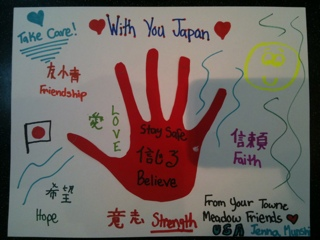 Take Care!
With You Japan
友情
Friendship
愛
LOVE
Stay Safe
信じろ
Believe
信頼
Faith
希望
Hope
意志
Strength
From Your Towne
Meadow Friends
USA